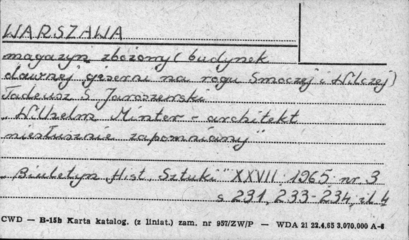 WARSZAWA
magazyn zbożowy (budynek
dawnej giserni na rogu Smoczej i Wilczej)
Tadeusz S. Jaroszewski
„Wilhelm Minter - architekt
niesłusznie zapomniany"
„Biuletyn Hist. Sztuki" XXVII, 1965 nr. 3
s 231, 233-234, il. 4
CWD — B-15b Karta katalog. (z liniat.) zam. nr 957/ZW/P — WDA 21 22.4.63 3.070.000 A-6